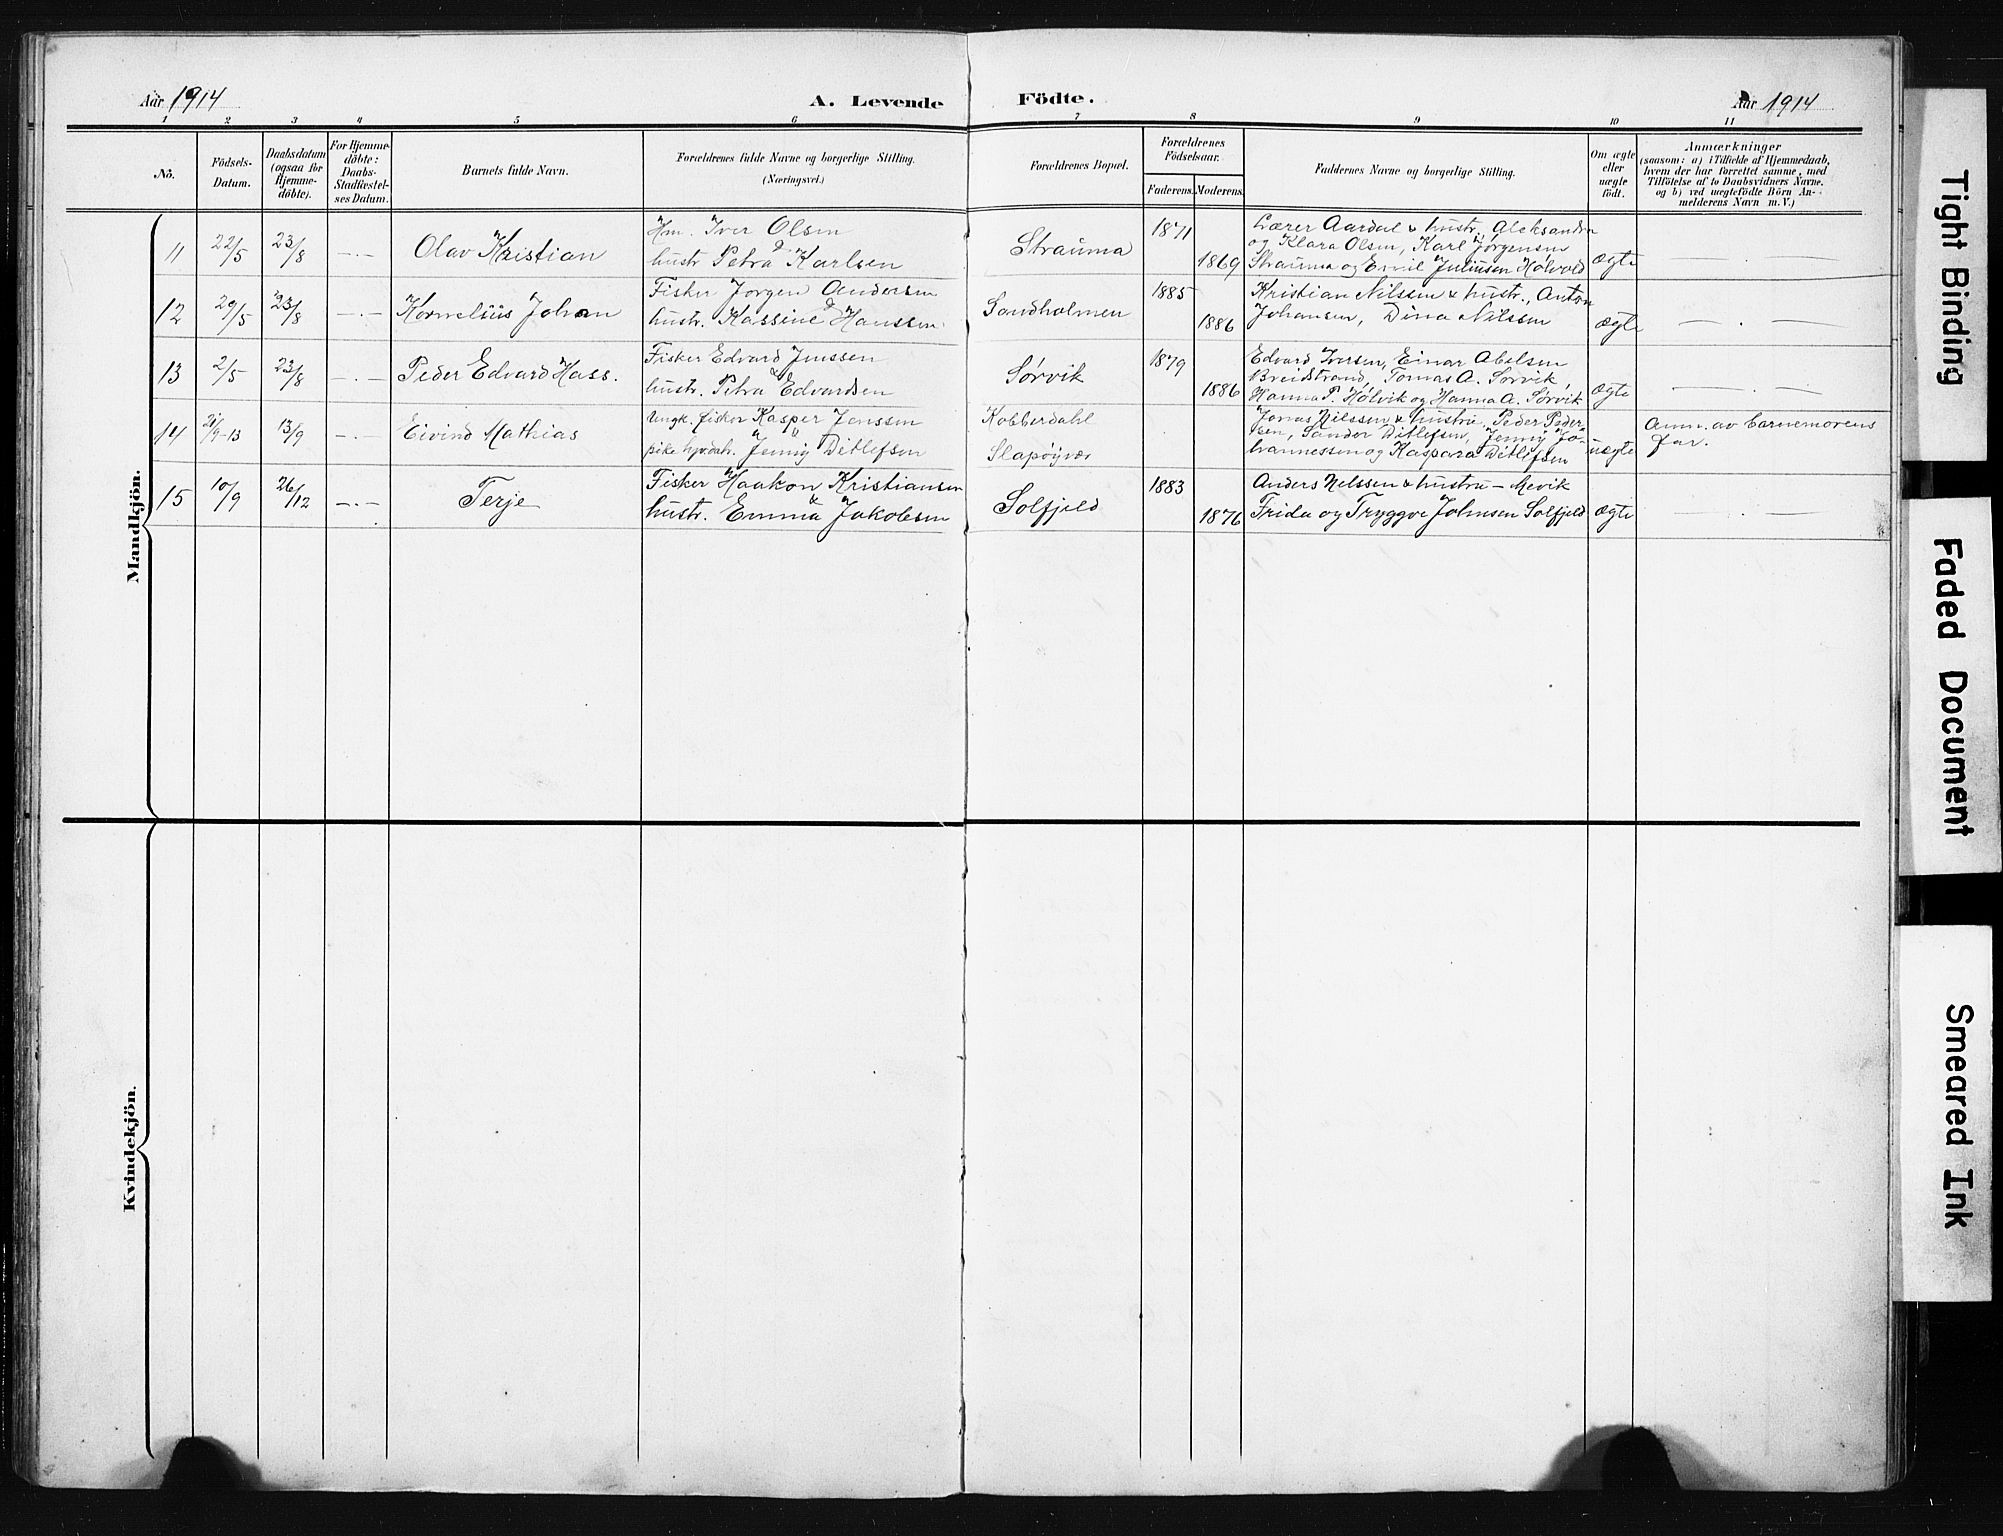 Aar 1914
A. Levende Födte.
Aar 1914
1 2 3 4 5 6 7 8 9 10 11
No.
Födsels-
Datum.
Daabsdatum
(ogsaa for
Hjemme-
döbte).
For Hjemme-
döbte:
Daabs-
Stadfæstel-
ses Datum.
Barnets fulde Navn.
Forældrenes fulde Navne og borgerlige Stilling.
(Næringsvei.)
Forældrenes Bopæl.
Forældrenes
Födselsaar.
Faderens.
Moderens.
Faddernes Navne og borgerlige Stilling.
Om ægte
eller
uægte
födt.
Anmærkninger
(saasom: a) i Tilfælde af Hjemmedaab,
hvem der har forrettet samme, med
Tilföielse af to Daabsvidners Navne,
og b) ved uægtefödte Börn An-
melderens Navn m. V.)
Mandkjön.
11 22/5 23/8 -.- Olav Kristian
Hm. Iver Olsen
&
hustr Petra Karlsen
Strauma
1871
1869
Lærer Aardal & hustr, Aleksandra
og Klara Olsen, Karl Jørgensen
Strauma og Emil Juliusen Hølvold
ægte
— . —
12 29/5 23/8 -.- Kornelius Johan
Fisker Jørgen Andersen
&
hustr. Kassine Hanssen
Sandholmen
1885
1886
Kristian Nilssen & hustr., Anton
Johansen, Dina Nilssen
ægte
— . —
13 2/5 23/8 -.- Peder Edvard Hass.
Fisker Edvard Jenssen
&
hustr. Petra Edvardsen
Sørvik
1879
1886
Edvard Iversen, Einar Abelsen
Breidstrand, Tomas A. Sørvik,
Hanna P. Hølvik og Hanna A. Sørvik
ægte
— . —
14 21/9-13 13/9 -.- Eivind Mathias
Ungk. fisker Kasper Jenssen
pike Jenny Ditlefsen
Kobberdahl
Slapøyvær
Jonas Nilssen & hustru, Peder Peder-
sen, Sander Ditlefsen, Jenny Jo-
hannessen og Kaspara Ditlefsen
uægte
Anm. av barnemorens
far.
15 10/9 26/12 -.- Terje
Fisker Haakon Kristiansen
&
hustr. Emma Jakobsen
Solfjeld
1883
1876
Anders Nilssen & hustru - Mevik
Frida og Tryggve Johnsen Solfjeld
ægte
— . —
Kvindekjön.
Tight Binding
Faded Document
Smeared Ink